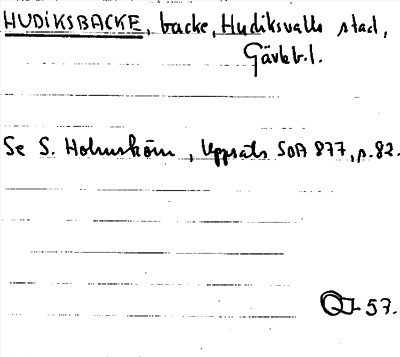 HUDIKSBACKE, backe, Hudiksvalls stad,
Gävleb. l.
Se S. Holmström, Uppsats SOA 877, p. 82.
-57.